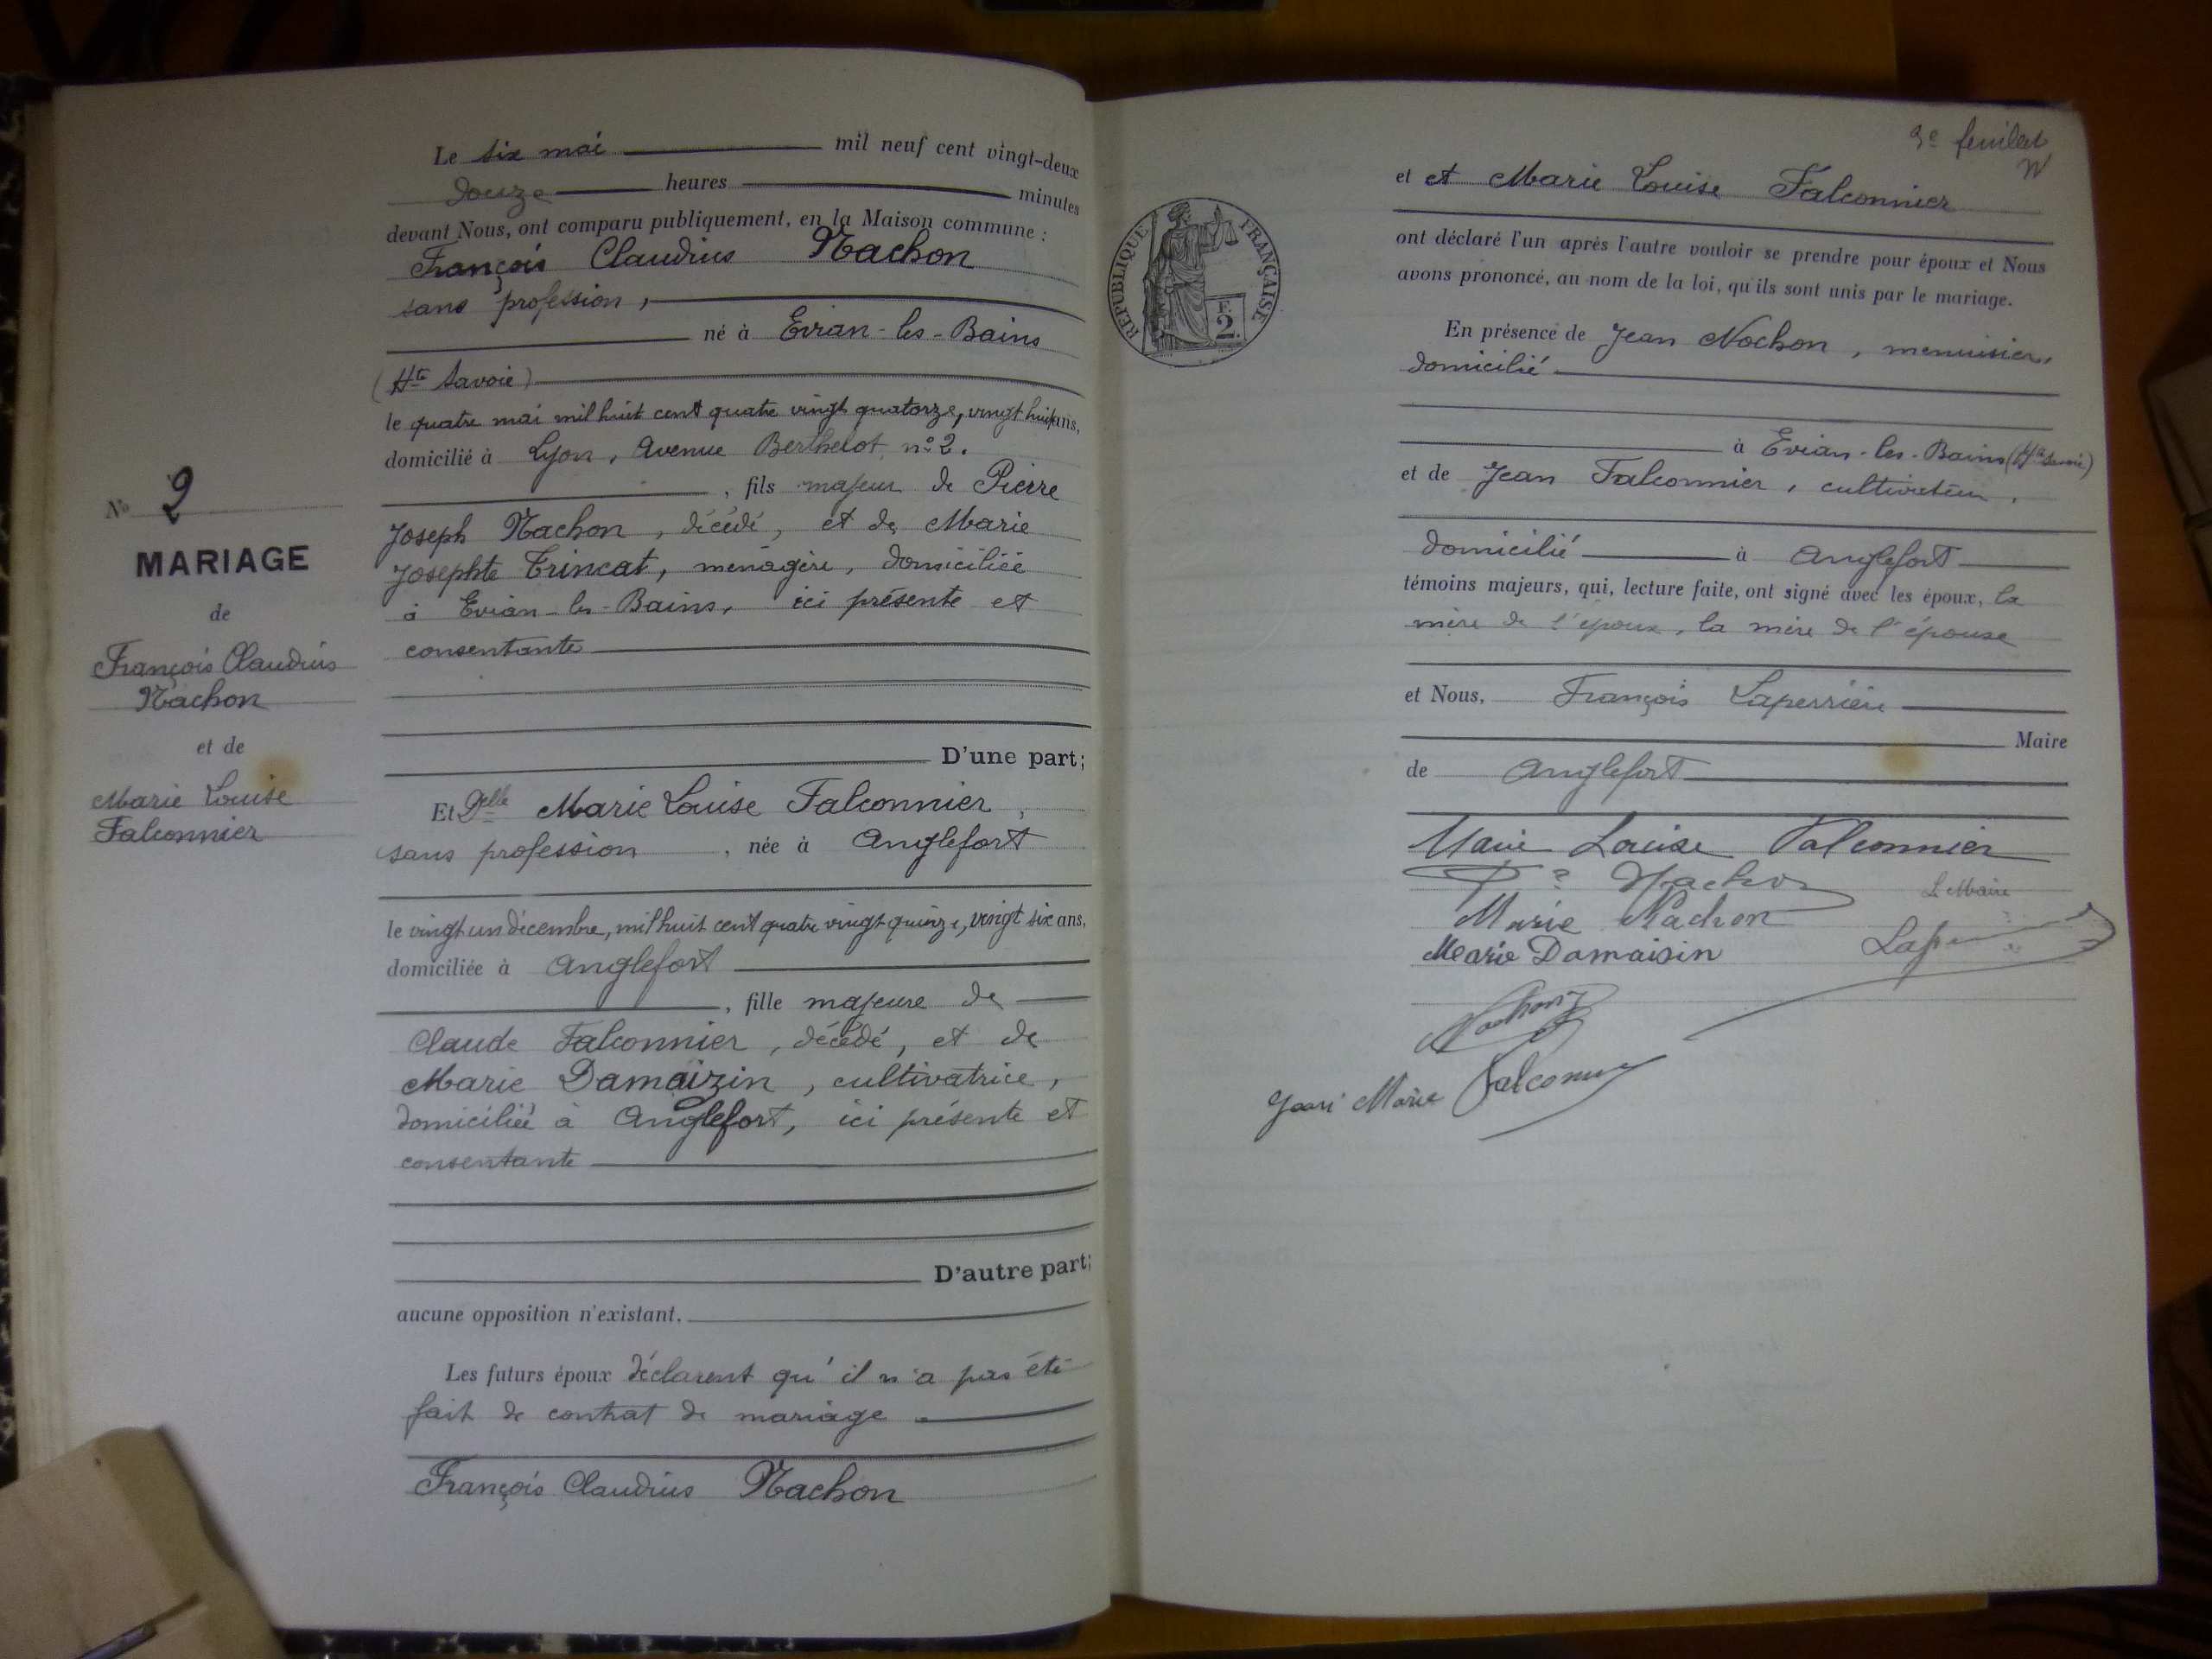 Le six mai mil neuf cent vingt-deux
douze heures minutes
devant Nous, ont comparu publiquement, en la Maison commune :
François Claudius Nachon
sans profession,
né à Evian-les-Bains
(Hte Savoie)
le quatre mai mil huit cent quatre vingt quatorze, vingt huit ans,
domicilié à Lyon, Avenue Berthelot, n° 2.
, fils majeur de Pierre
Joseph Nachon, décédé, et de Marie
Josephte Trincat, ménagère, domiciliée
à Evian-les-Bains, ici présente et
consentante
D'une part;
Et Delle Marie Louise Falconnier,
sans profession, née à Anglefort
le vingt un décembre, mil huit cent quatre vingt-quinze, vingt six ans,
domiciliée à Anglefort
, fille majeure de
Claude Falconnier, décédé, et de
Marie Damaizin, cultivatrice,
domiciliée à Anglefort, ici présente et
consentante
D'autre part;
aucune opposition n'existant,
Les futurs époux déclarent qu'il n'a pas été
fait de contrat de mariage.
François Claudius Nachon
No 2
MARIAGE
de
François Claudius
Nachon
et de
Marie Louise
Falconnier
3e feuillet
REPUBLIQUE FRANÇAISE
F. 2
et et Marie Louise Falconnier
ont déclaré l'un après l'autre vouloir se prendre pour époux et Nous
avons prononcé, au nom de la loi, qu'ils sont unis par le mariage.
En présence de Jean Nochon, menuisier,
domicilié
à Evian-les-Bains (Hte Savoie)
et de Jean Falconnier, cultivateur,
domicilié à Anglefort
témoins majeurs, qui, lecture faite, ont signé avec les époux, la
mère de l'époux, la mère de l'épouse
et Nous, François Laperrière
Maire
de Anglefort
Marie Louise Falconnier
Nachon
Le Maire
Marie Nachon
Marie Damaisin
Nachon
Marie Falconnier